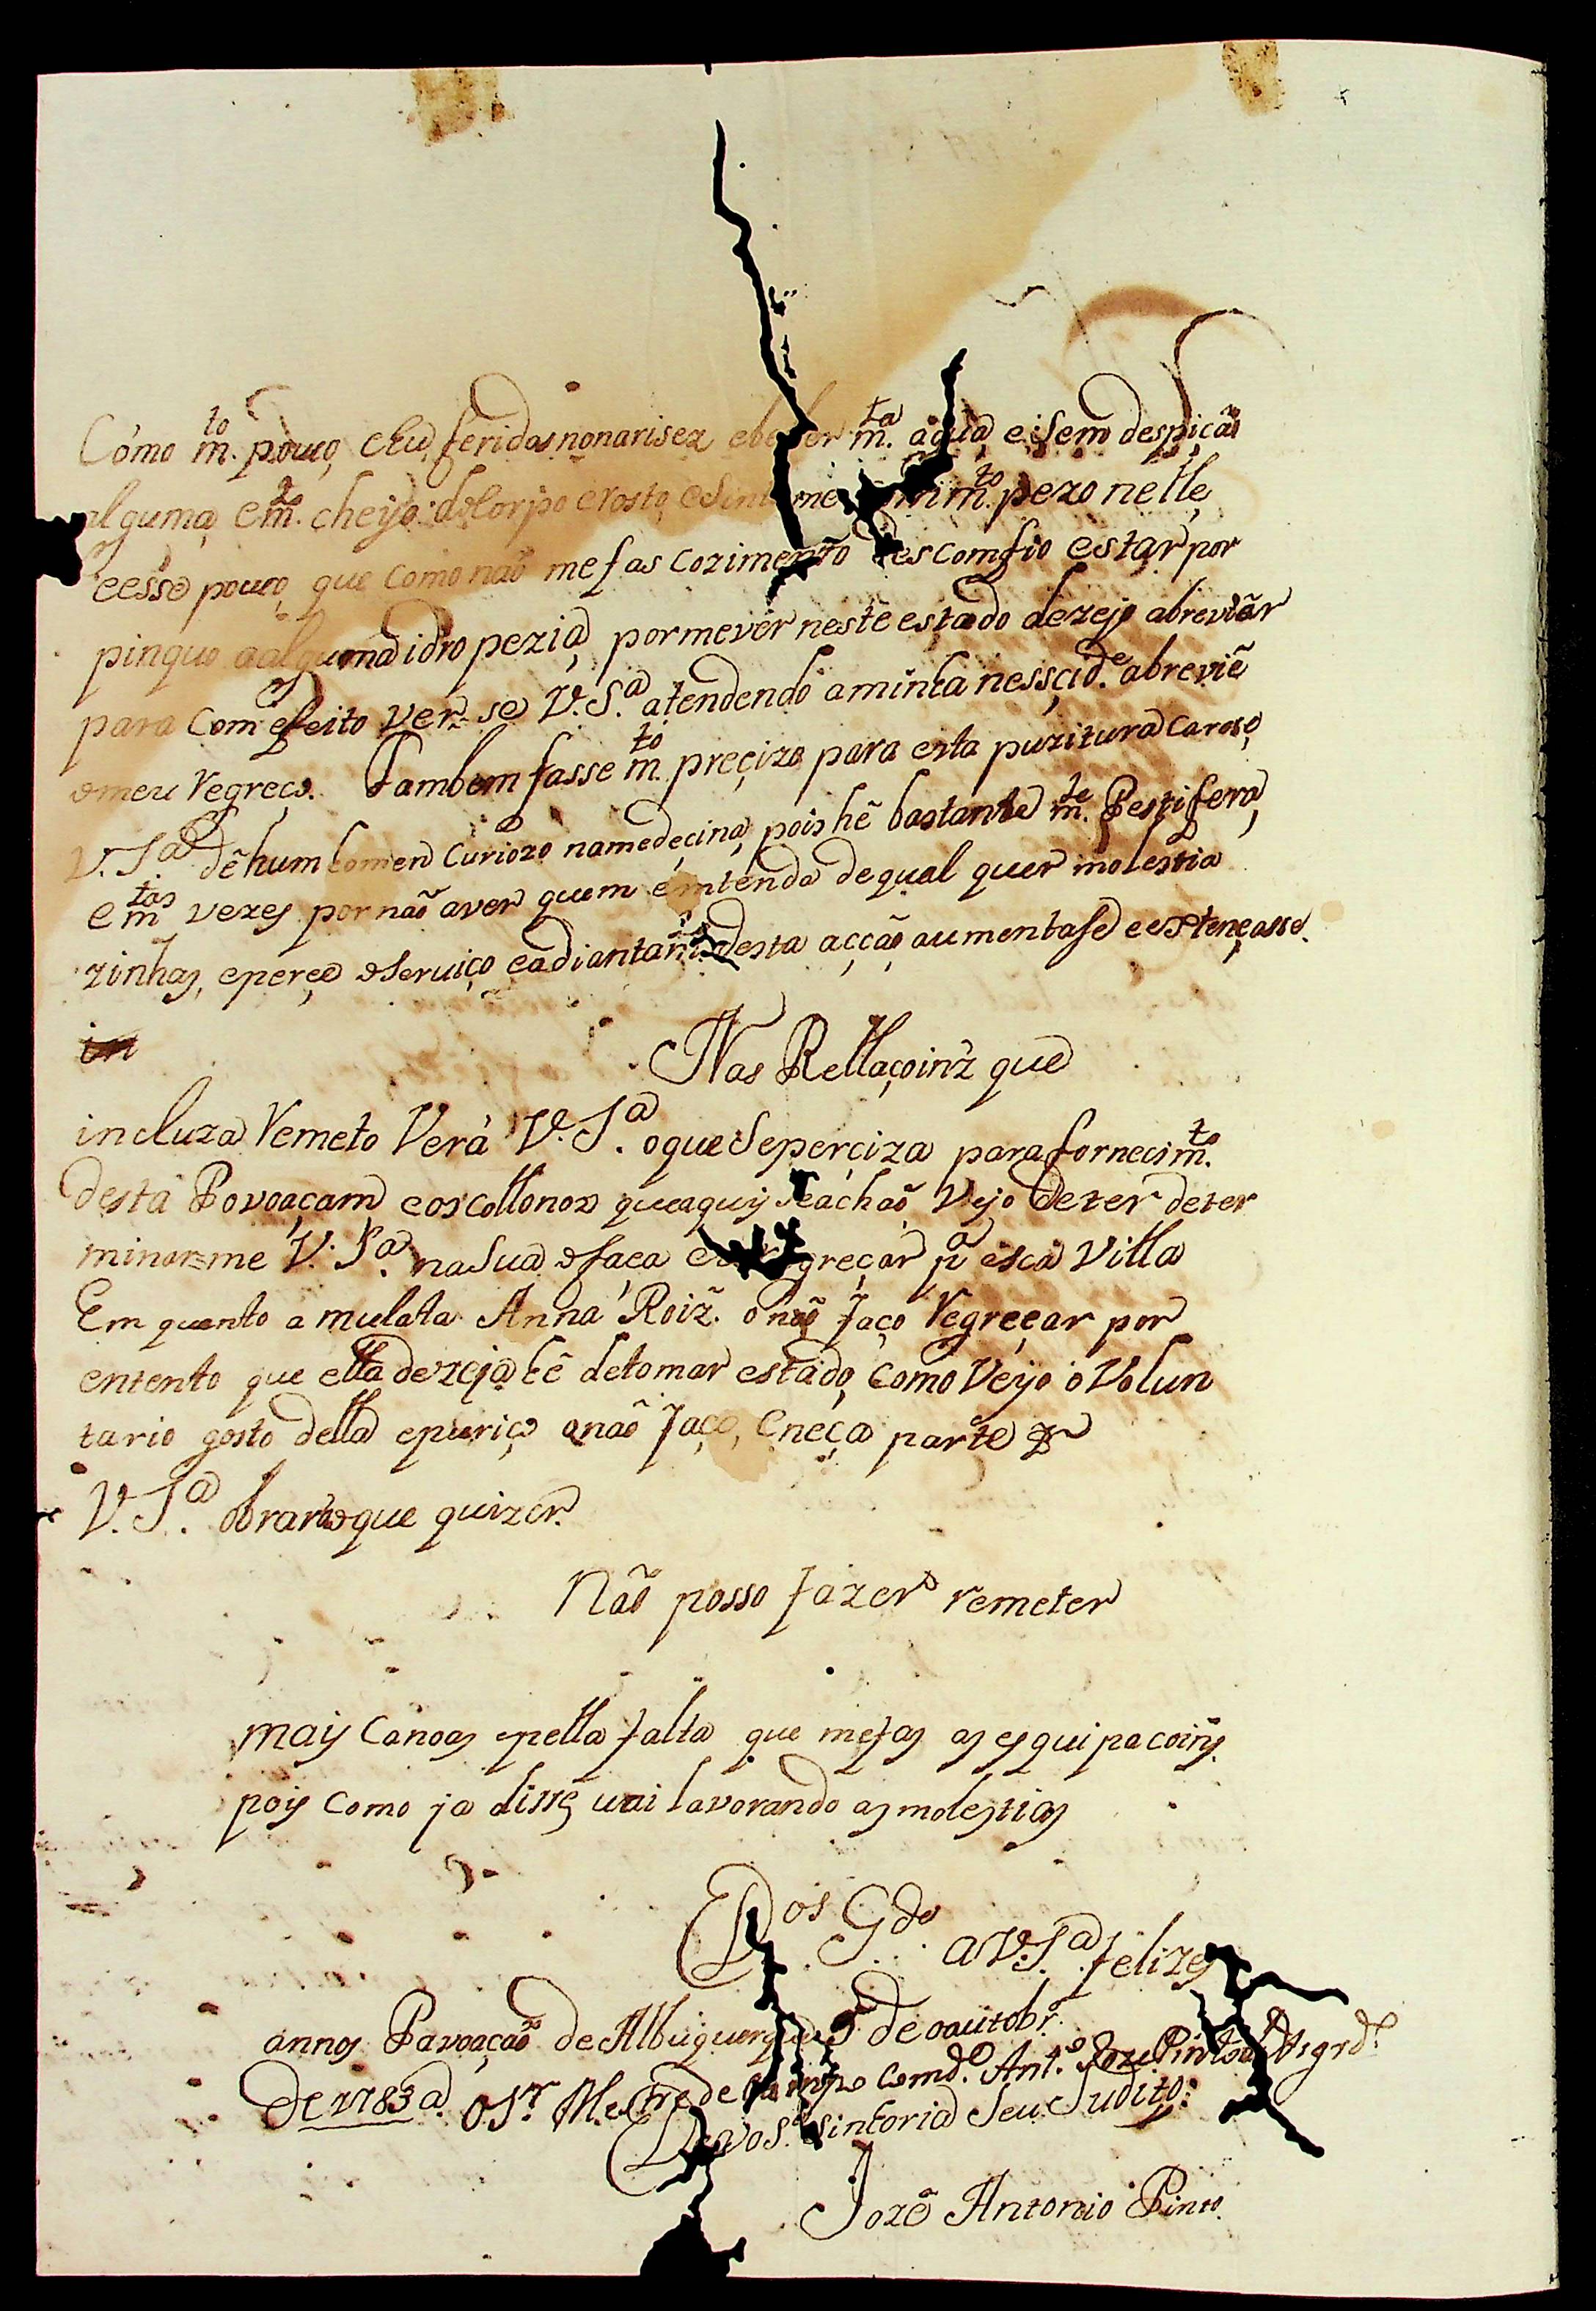 Como m.to pouco, e Eu feridas nonarisez e beber m.ta agua, e sem despição
alguma, e m.to cheyo do Corpo e rosto, e Sinto me com m.to pezo nelle,
e esse pouco, que Como não me fas Cozimento descomfio estar por
pinquo a alguma idropezia, por me ver neste estado dezejo abreviar
para Com efeito ver se V. S.a atendendo a minha nessçid.e abrevie
o meu Regreço. Tambem fasse m.to preçizo para esta puzitura Caroso,
V. S.a de hum homem Curiozo namedeçina, pois hé bastante m.te Pestifera,
e m.tas vezes por não aver quem emtenda de qual quer molestia
zinhas, e pereçe o Serviço e adiantam desta acção aumentase e estençasse.
in
Nas Rellaçoinz que
incluza Remeto Verá V. S.a o que Seperçiza para fornecim.to
desta Povoaçam e os Collonos que aquy Seachão, Vejo deter deter
minar=me V. S.a na Sua o faça greçar p.a esca Villa
Em quanto a mulata Anna Roiz. o não faço Regreçar por
entento que ella dezeja hé detomar estado, Como Vejo o Volun
tario gosto della e puriço o não faço, e neça parte
V. S.a obrará o que quizer.
Não posso fazer remeter
mais Canoas e pella falta que mefas as esquipacoins.
pois Como ja disse, vai lavorando as molestias
D.os G.de a V. S.a felizes
annos Pavoação de Albuquerque 5 de oautobr.o
De 1783 a. O S.r Mestre de Campo Comd.e Ant.o Joze Pinto
De vos.a Sinhoria Seu Sudito:
Jozé Antonio Pinto.